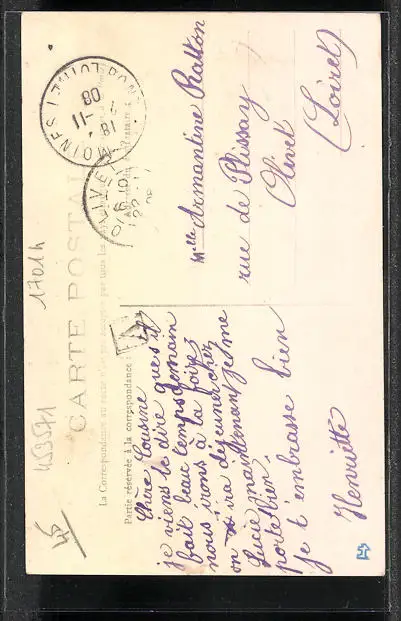 CARTE POSTALE
La Correspondance au recto n'est pas acceptée par tous les pays
Partie réservée à la correspondance
Chère Cousine
je viens te dire que s'il
fait beau temps demain
nous irons à la foire
on ira déjeuner chez
Lucie maintenant je me
porte bien
Je t'embrasse bien
Henriette
Mlle Armantine Ratton
rue de Plissay
Olivet
(Loiret)
MOINES
18
11
08
OLIVET
17014